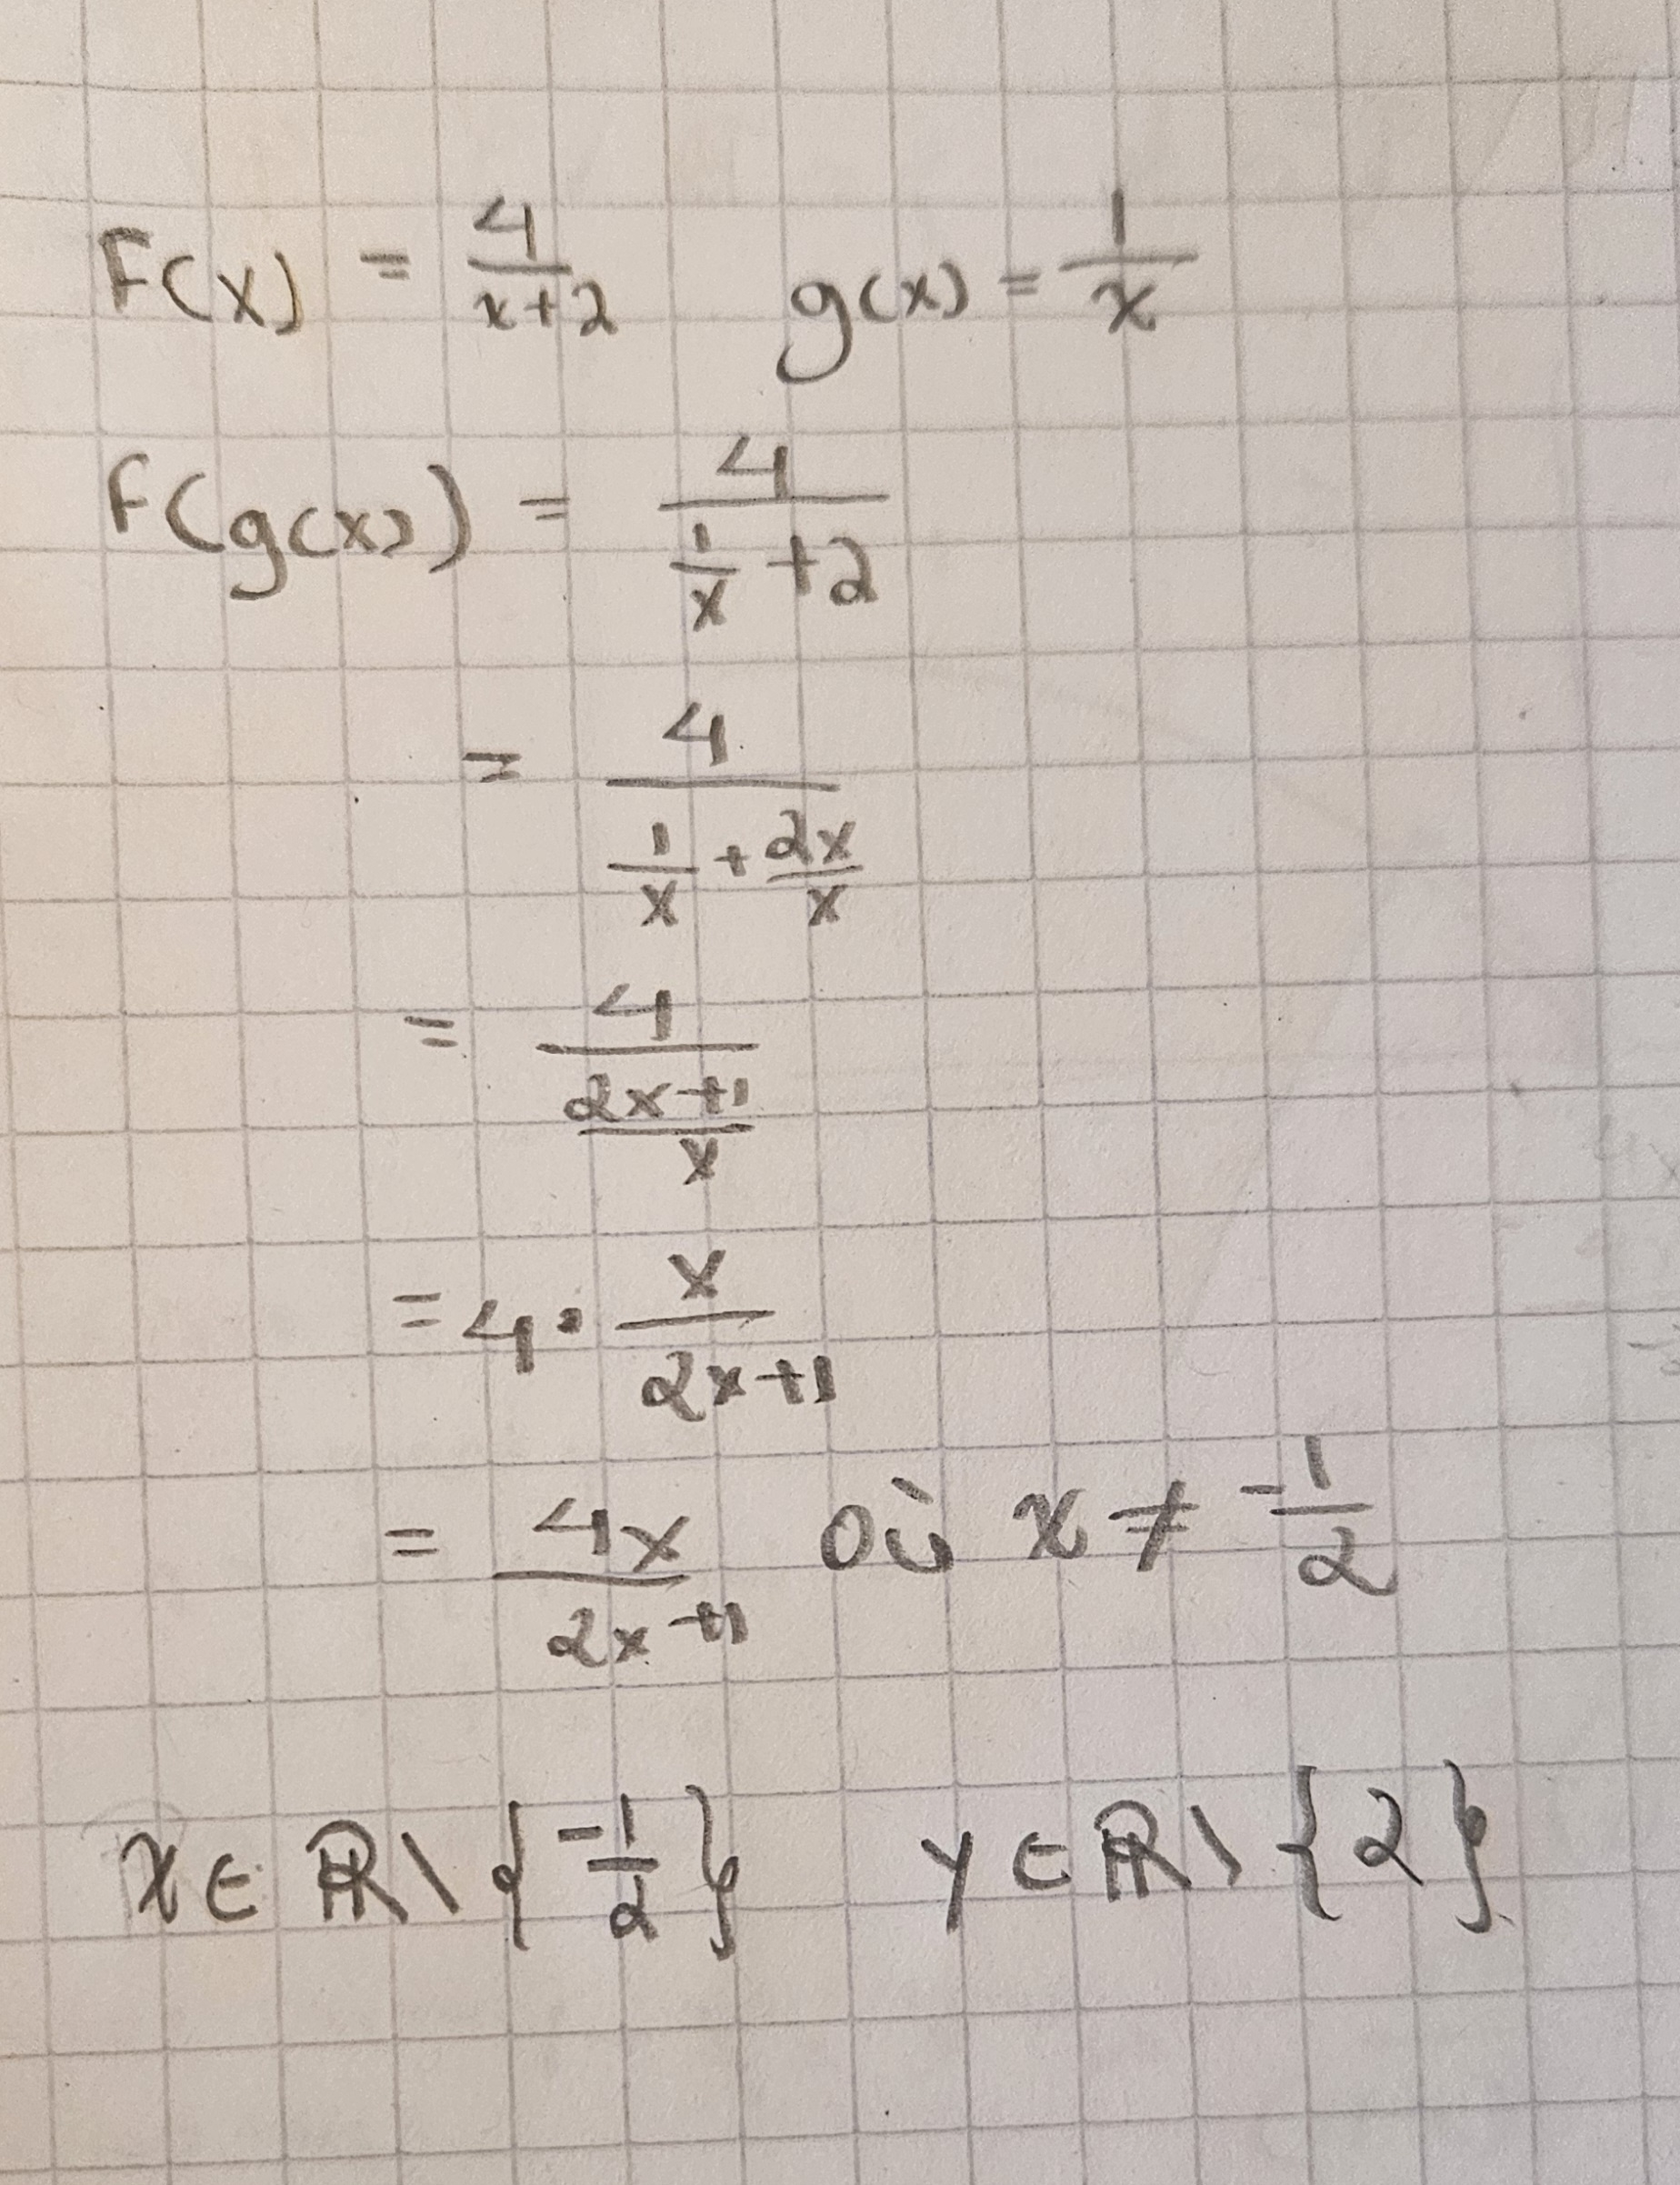 F(x) = 4/(x+2) g(x) = 1/x
F(g(x)) = 4/(1/x + 2)
= 4/(1/x + 2x/x)
= 4/((2x+1)/x)
= 4 · x/(2x+1)
= 4x/(2x+1) où x ≠ -1/2
x ∈ ℝ \ {-1/2} y ∈ ℝ \ {2}